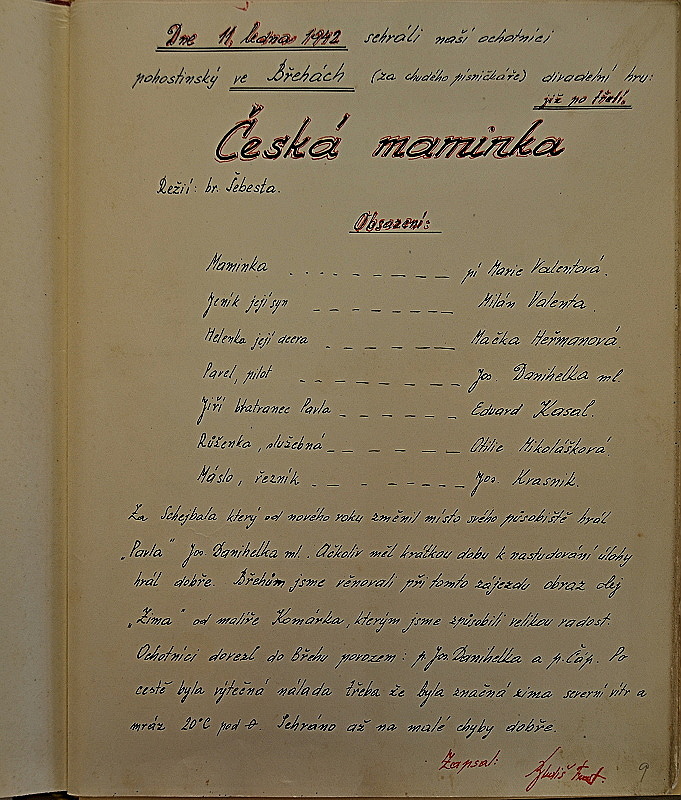 Dne 11. ledna 1942 sehráli naši ochotníci
pohostinský ve Břehách (za chudého písničkáře) divadelní hru:
již po třetí.
Česká maminka
Režií: br. Šebesta.
Obsazení:
Maminka . . . . _ _ _ _ _ _ pí Marie Valentová.
Jeník její syn _ _ _ _ _ _ Milán Valenta.
Helenka její dcera _ _ _ _ _ _ Mačka Heřmanová.
Pavel, pilot . _ _ _ _ _ _ Jos. Danihelka ml.
Jiří bratranec Pavla _ _ _ _ _ _ Eduard Kasal.
Růženka, služebná _ _ _ _ _ _ Otilie Mikolášková.
Máslo, řezník _ _ _ _ _ _ Jos. Krasník.
Za Schejbala který od nového roku změnil místo svého působiště hrál
„Pavla" Jos. Danihelka ml. Ačkoliv měl krátkou dobu k nastudování úlohy
hrál dobře. Břehům jsme věnovali při tomto zájezdu obraz olej
„Zima" od malíře Komárka, kterým jsme způsobili velikou radost.
Ochotníci dovezl do Břehu povozem: p. Jos. Danihelka a p. Čáp. Po
cestě byla výtečná nálada třeba že byla značná zima severní vítr a
mráz 20°C pod 0. Sehráno až na malé chyby dobře.
Zapsal:
9